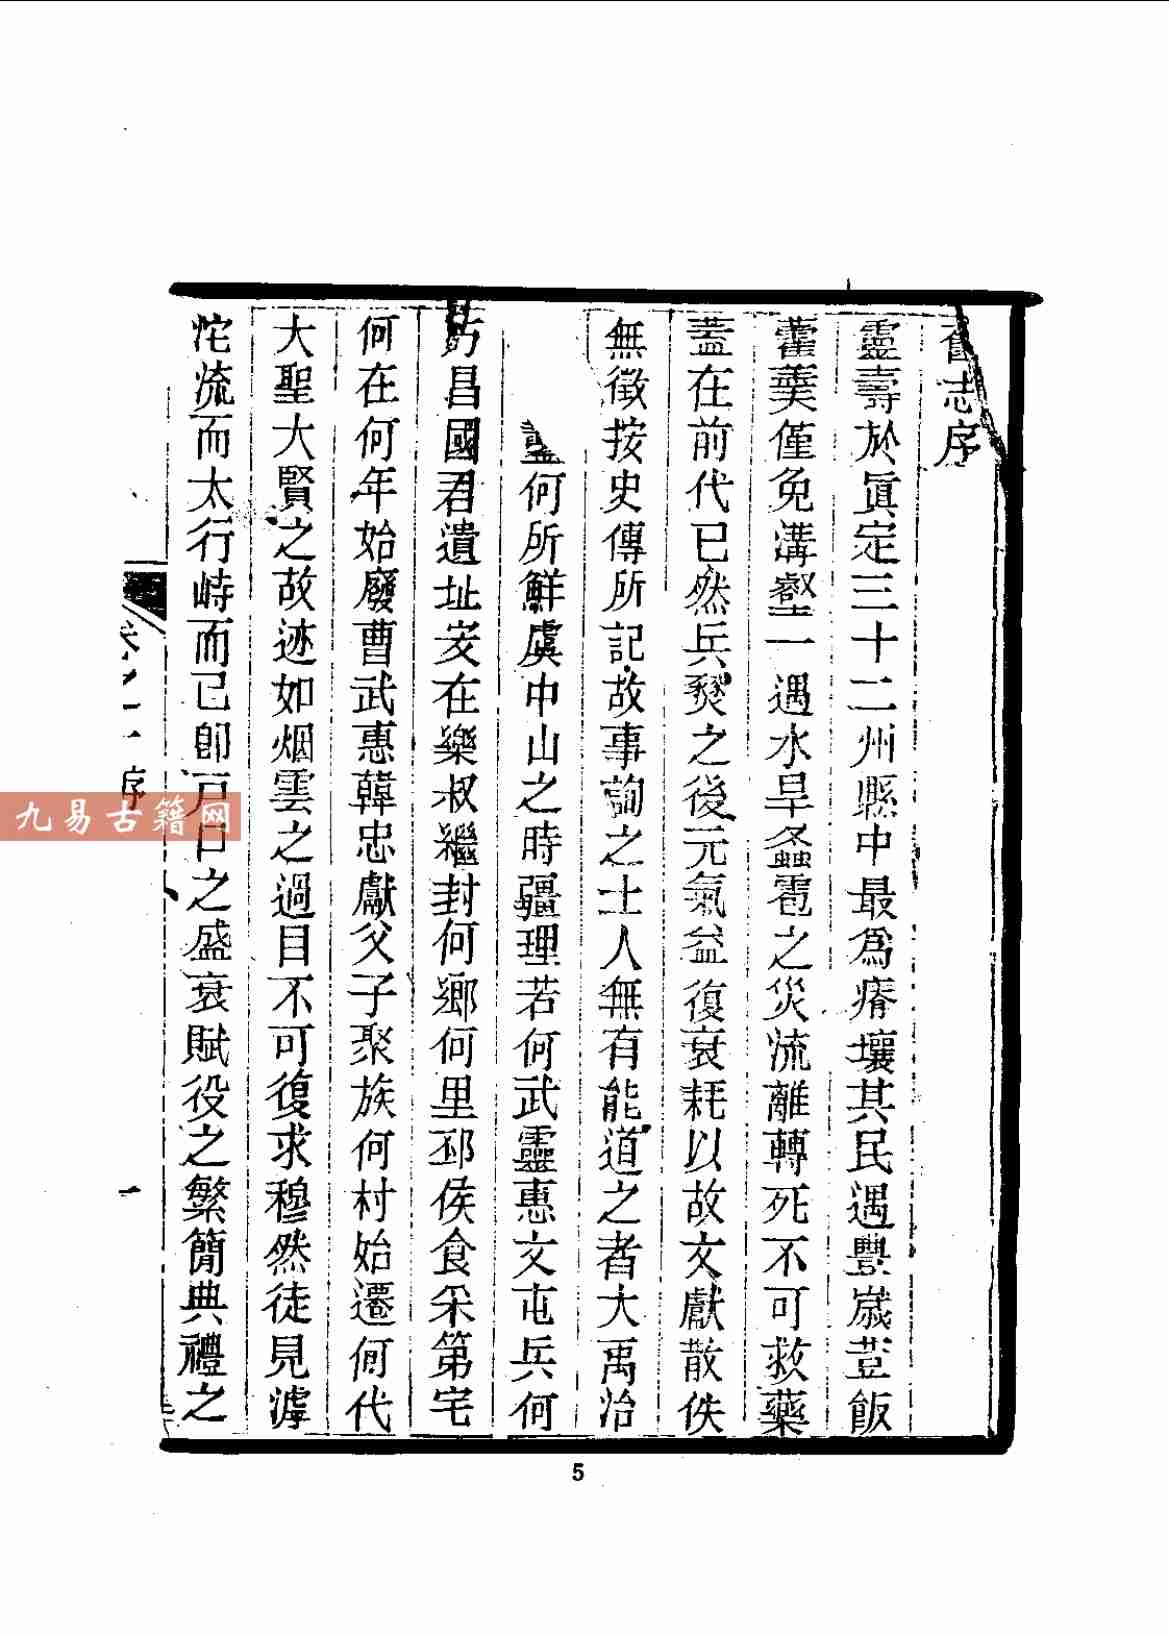 舊志序
靈壽於眞定三十二州縣中最爲瘠壤其民遇豐嵗荳飯
藿羹僅免溝壑一遇水旱螽雹之災流離轉死不可救藥
蓋在前代已然兵燹之後元氣益復衰耗以故文獻散佚
無徵按史傳所記故事詢之士人無有能道之者大禹治
何所鮮虞中山之時疆理若何武靈惠文屯兵何
昌國君遺址妄在樂叔繼封何鄉何里邳侯食采第宅
何在何年始廢曹武惠韓忠獻父子聚族何村始遷何代
大聖大賢之故迹如烟雲之過目不可復求穆然徒見滹
沱流而太行峙而已卽戸口之盛衰賦役之繁簡典禮之
卷之一 序
一
九易古籍网
5